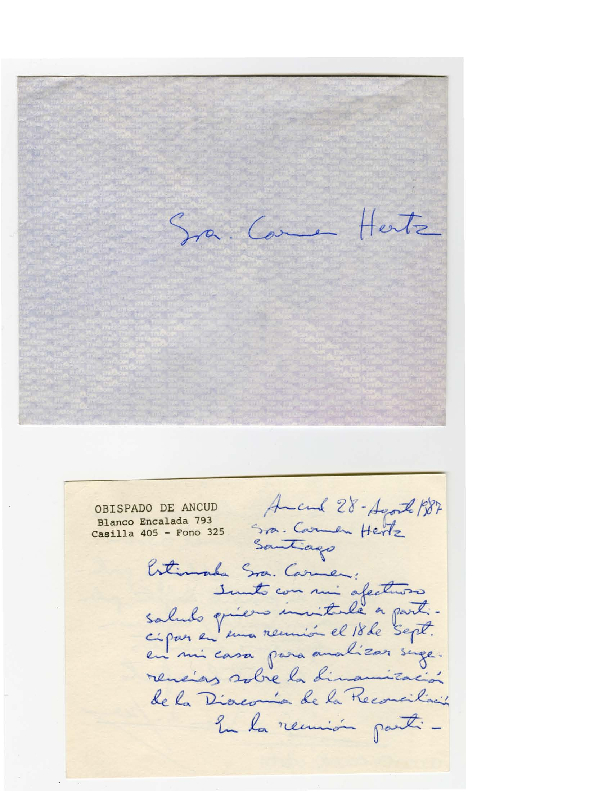 Sra. Carmen Hertz
OBISPADO DE ANCUD
Blanco Encalada 793
Casilla 405 - Fono 325
Ancud 28 - Agosto 1987
Sra. Carmen Hertz
Santiago
Estimada Sra. Carmen:
Junto con mi afectuoso
saludo quiero invitarla a parti-
cipar en una reunión el 18 de Sept.
en mi casa para analizar suge-
rencias sobre la dinamización
de la Diaconía de la Reconciliación
En la reunión parti-